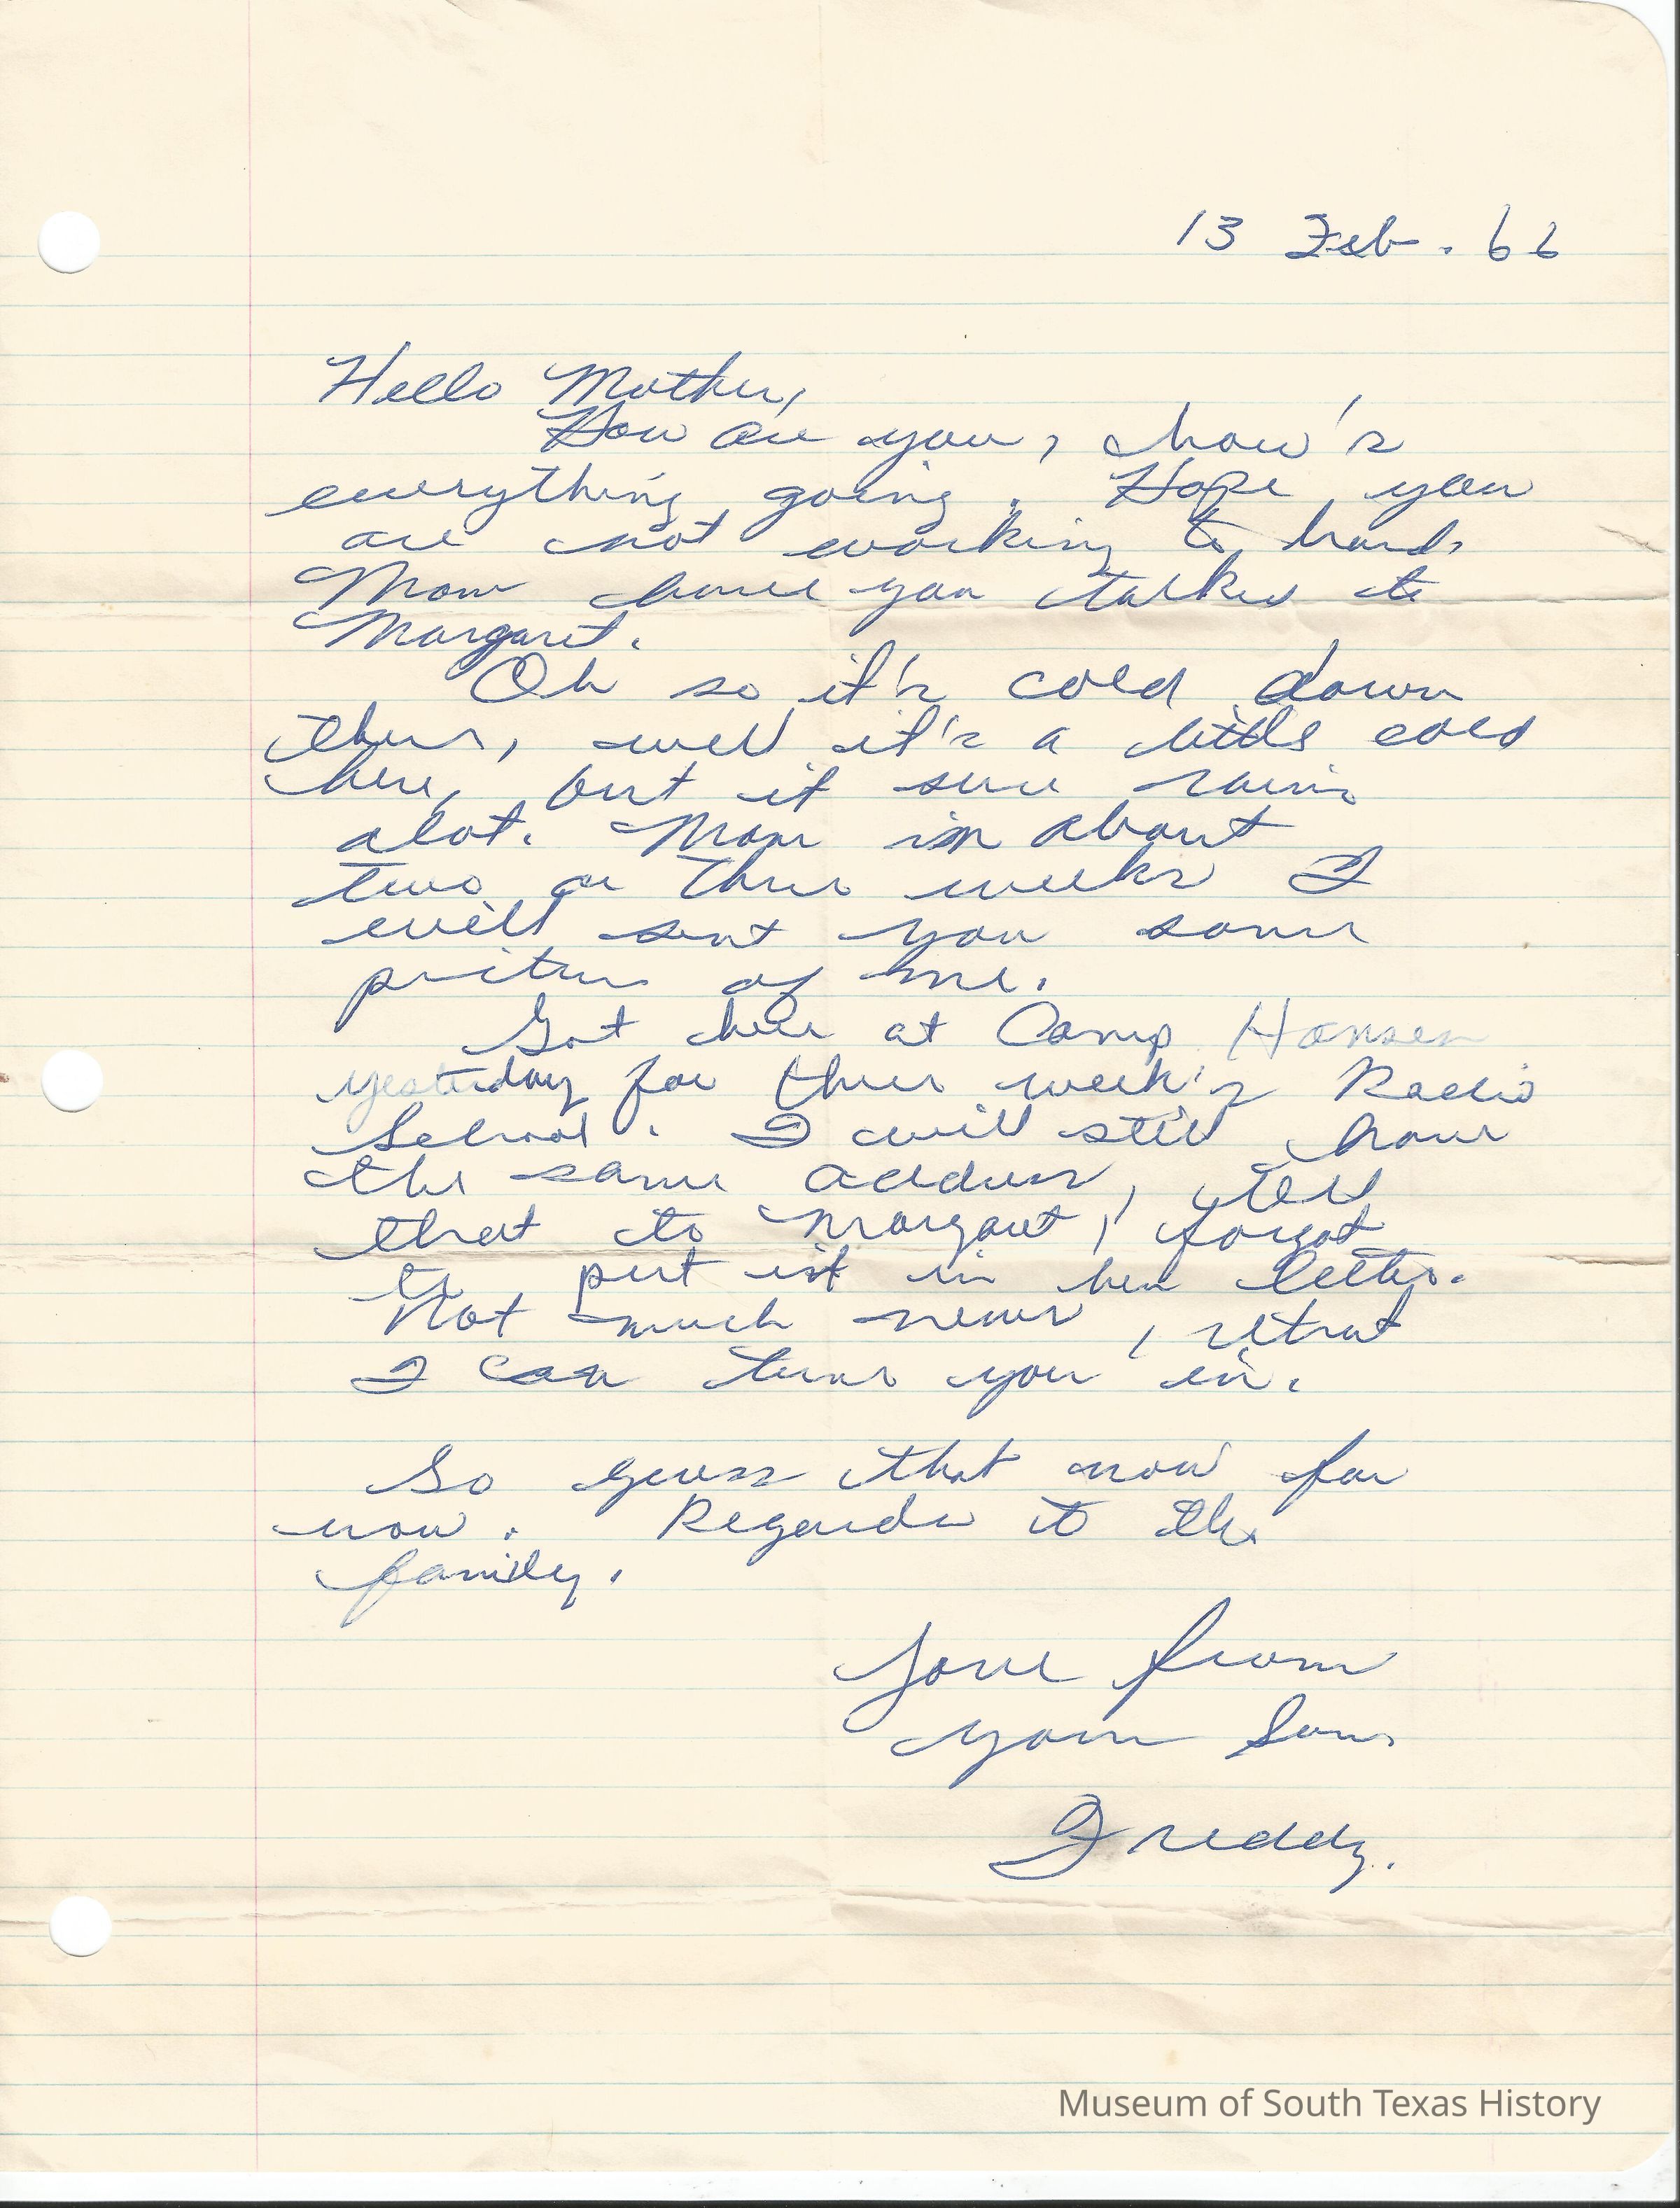 13 Feb. 66
Hello Mother,
How are you, how's
everything going. Hope you
are not working to hard.
Mom have you talked to
Margaret.
Oh so it's cold down
there, well it's a little cold
here, but it sure rains
alot. Mom in about
two or three weeks I
will sent you some
picture of me.
Got here at Camp Hansen
yesterday for three week's Radio
School. I will still have
the same address, tell
that to Margaret, forgot
to put it in her letter.
Not much news, that
I can turn you in.
So guess that now for
now. Regards to the
family.
Love from
your Son.
Freddy.
Museum of South Texas History